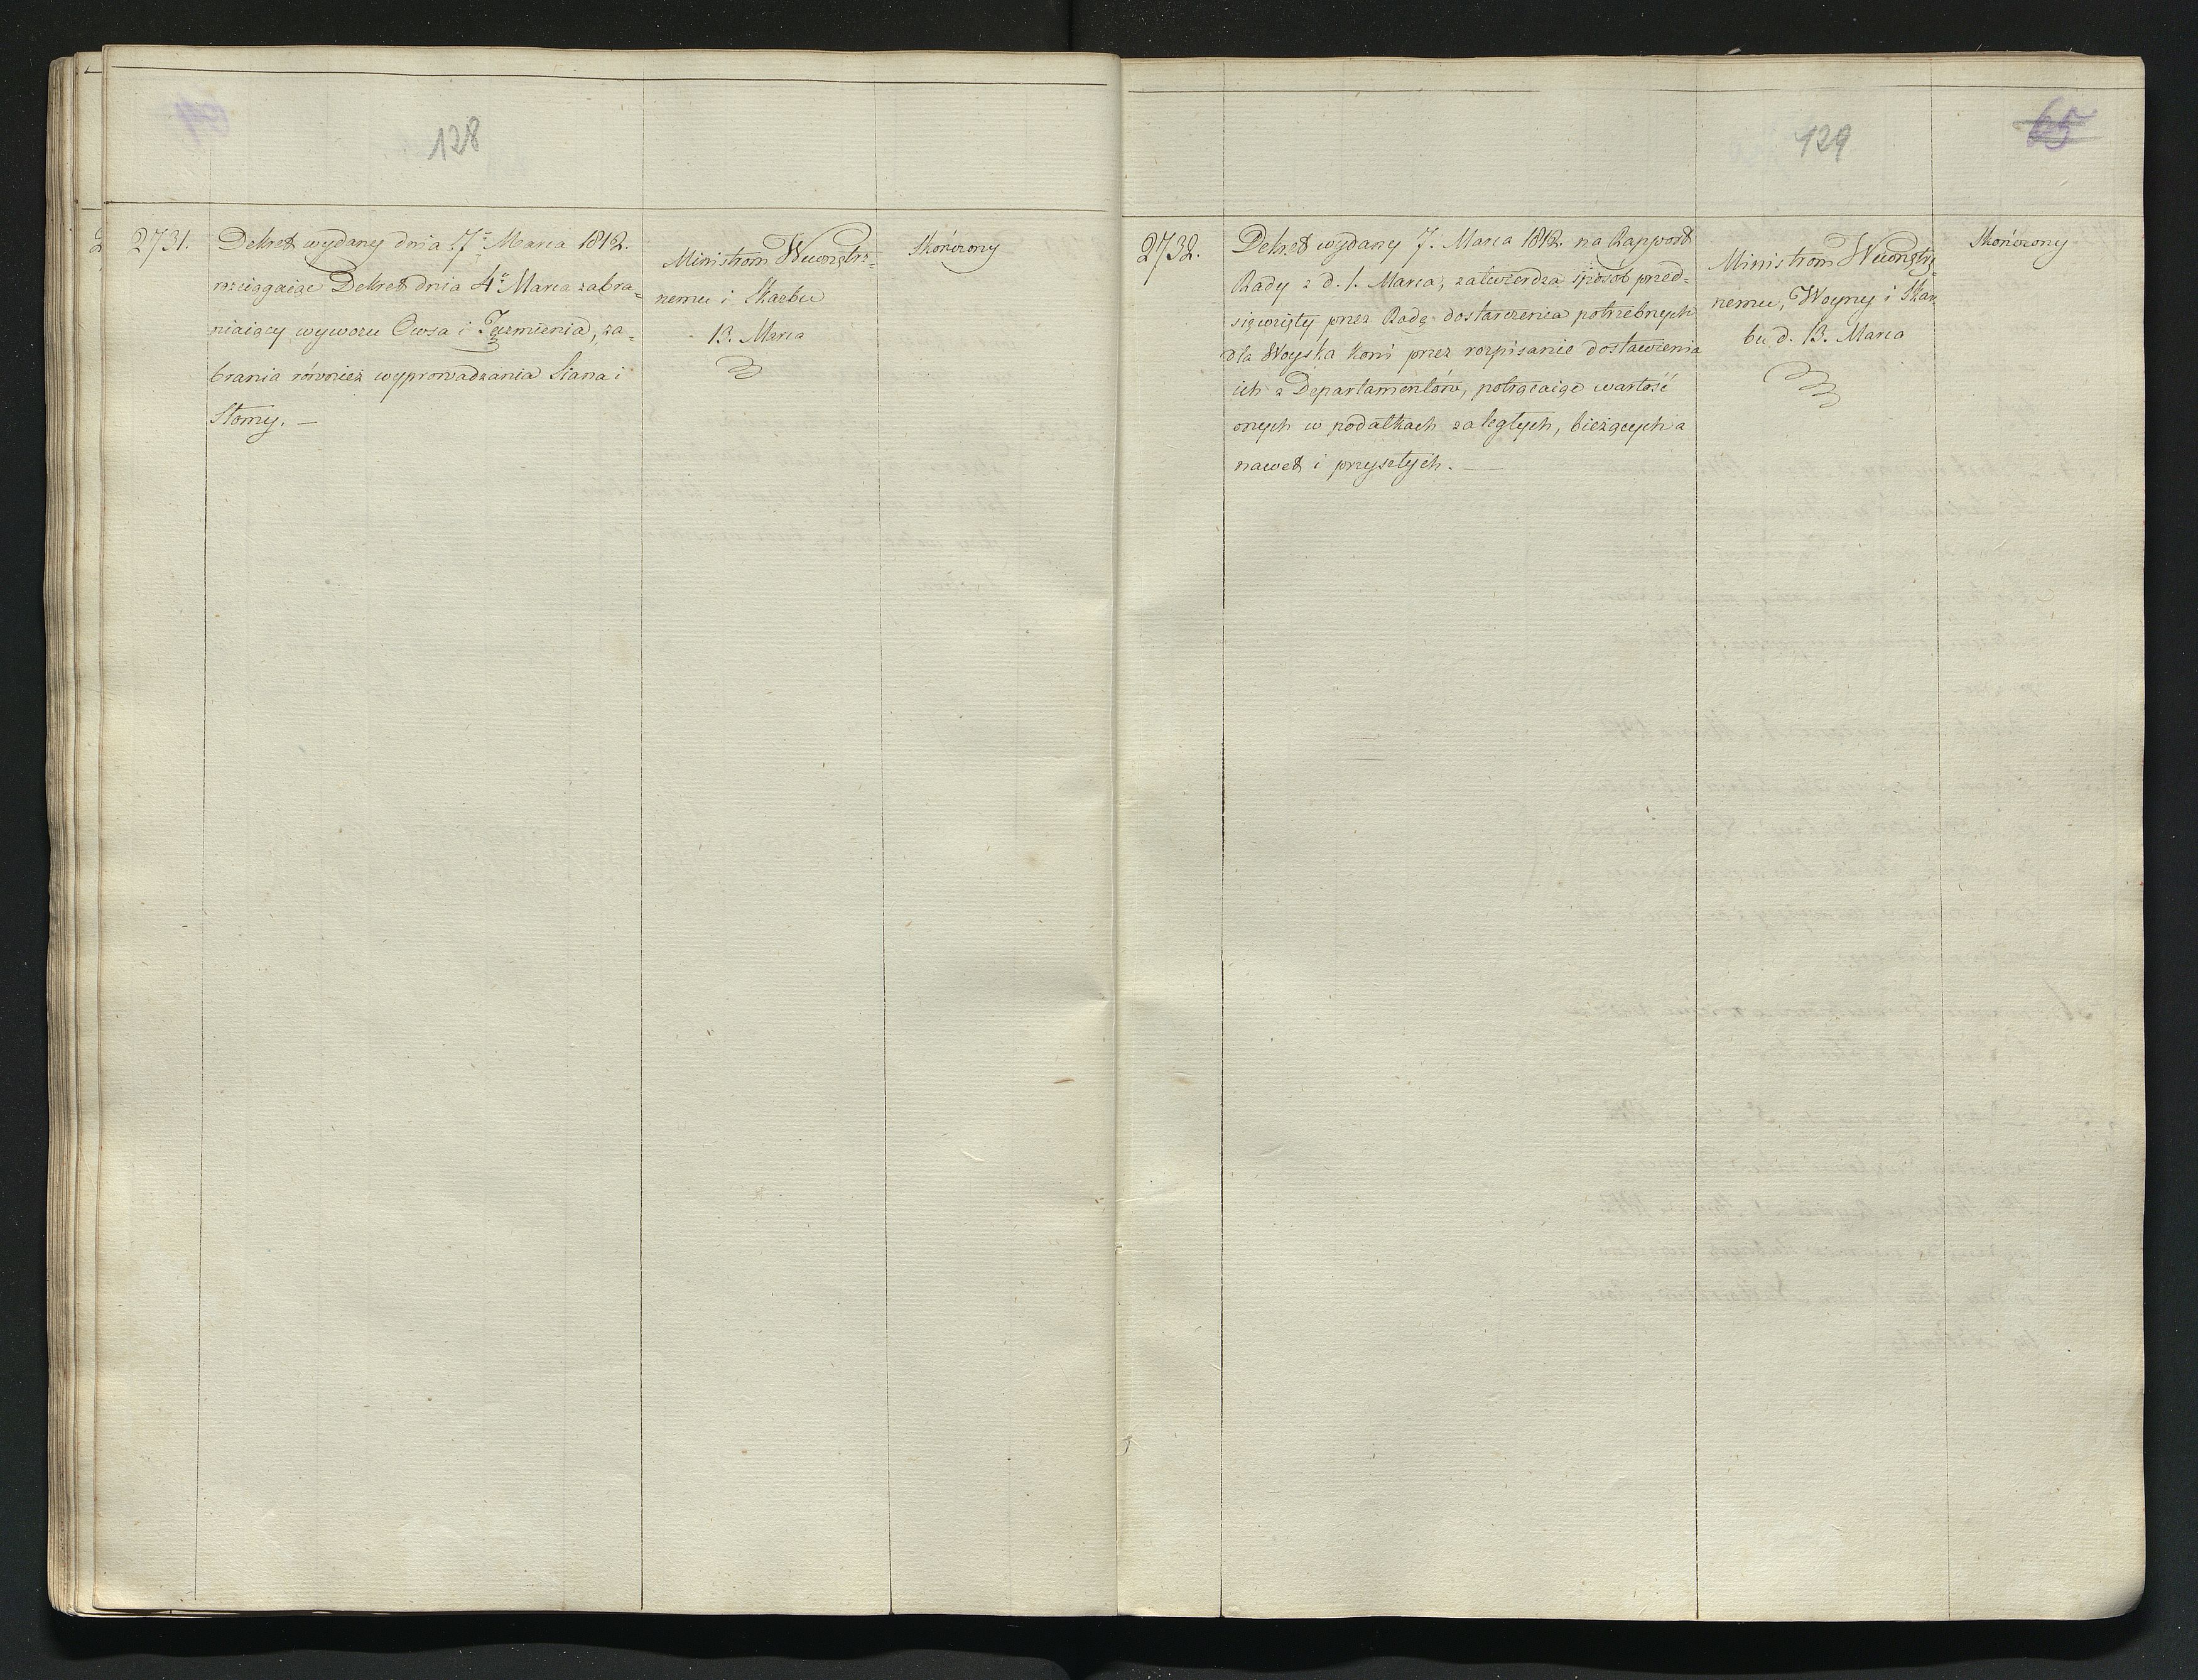 128
2731.
Dekret wydany dnia 7º Marca 1812.
rościągaiąc Dekret dnia 4º Marca zabra=
niaiący wywozu Owsa i Jęczmienia, za=
brania również wyprowadzania Siana i
Słomy. —
Ministrom Wewnętrz=
nemu i Skarbu
13. Marca
Skończony
129
65
2732.
Dekret wydany 7. Marca 1812. na Rapport
Rady z d. 1. Marca, zatwierdza sposób przed=
sięwzięty przez Radę dostarczenia potrzebnych
dla Woyska koni przez rozpisanie dostawienia
ich z Departamentów, potrącaiąc wartość
onych w podatkach zaległych, bieżących a
nawet i przyszłych. —
Ministrom Wewnętrz=
nemu, Woyny i Skar=
bu d. 13. Marca
Skończony